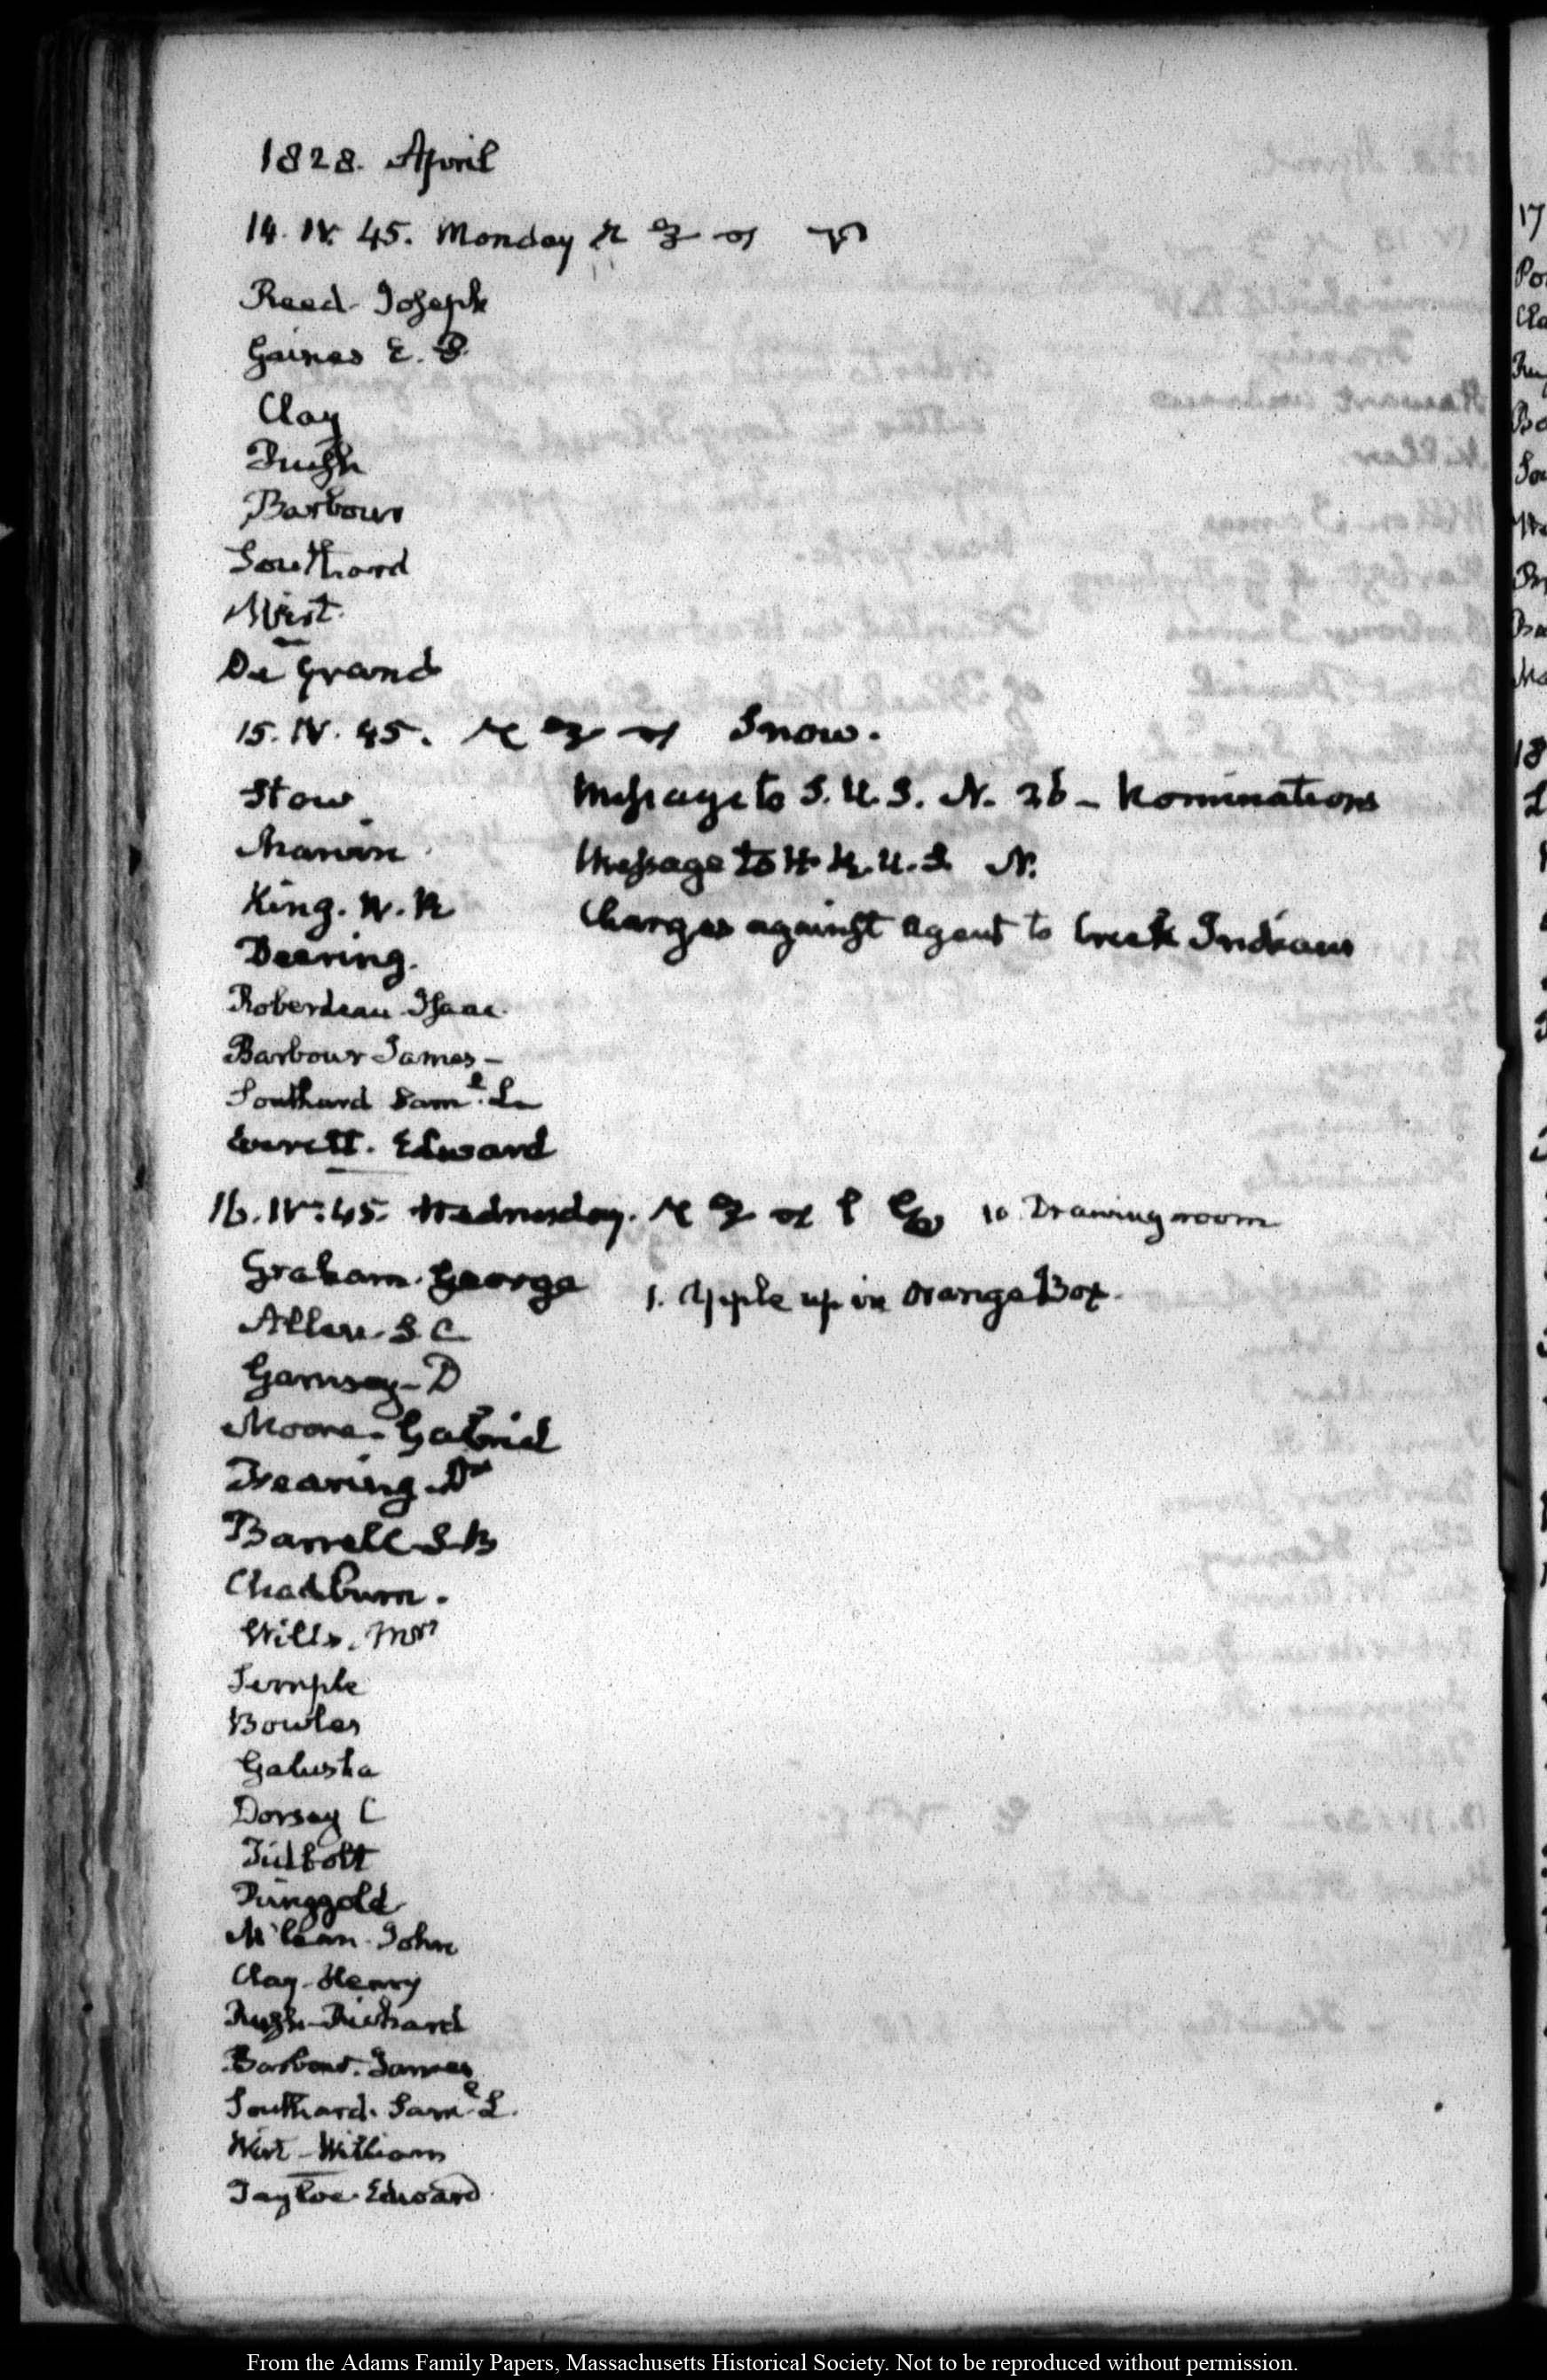 1828. April
14. IV. 45. Monday
Reed Joseph
Gaines E. P.
Clay
Rush
Barbour
Southard
Wirt.
De Grand
15. IV. 45. Snow.
Stow Message to S. U. S. N. 26 - Nominations
Marvin Message to H. R. U. S. N.
King. W. R Charges against agent to Creek Indians
Deering.
Roberdeau Isaac
Barbour James -
Southard Saml. L.
Everett. Edward
16. IV: 45. Wednesday. 10 Drawing room
Graham. George 1. Apple up in Orange Box.
Allen. S. C
Garnsey - D
Moore. Gabriel
Fearing. Dr
Barrell S B
Chadburn.
Wills. Mrs
Temple
Bowles
Galusha
Dorsey C
Tidbolt
Ringgold
McLean John
Clay - Henry
Rush - Richard
Barbour. James
Southard. Saml. L.
Wirt - William
Tayloe. Edward
From the Adams Family Papers, Massachusetts Historical Society. Not to be reproduced without permission.